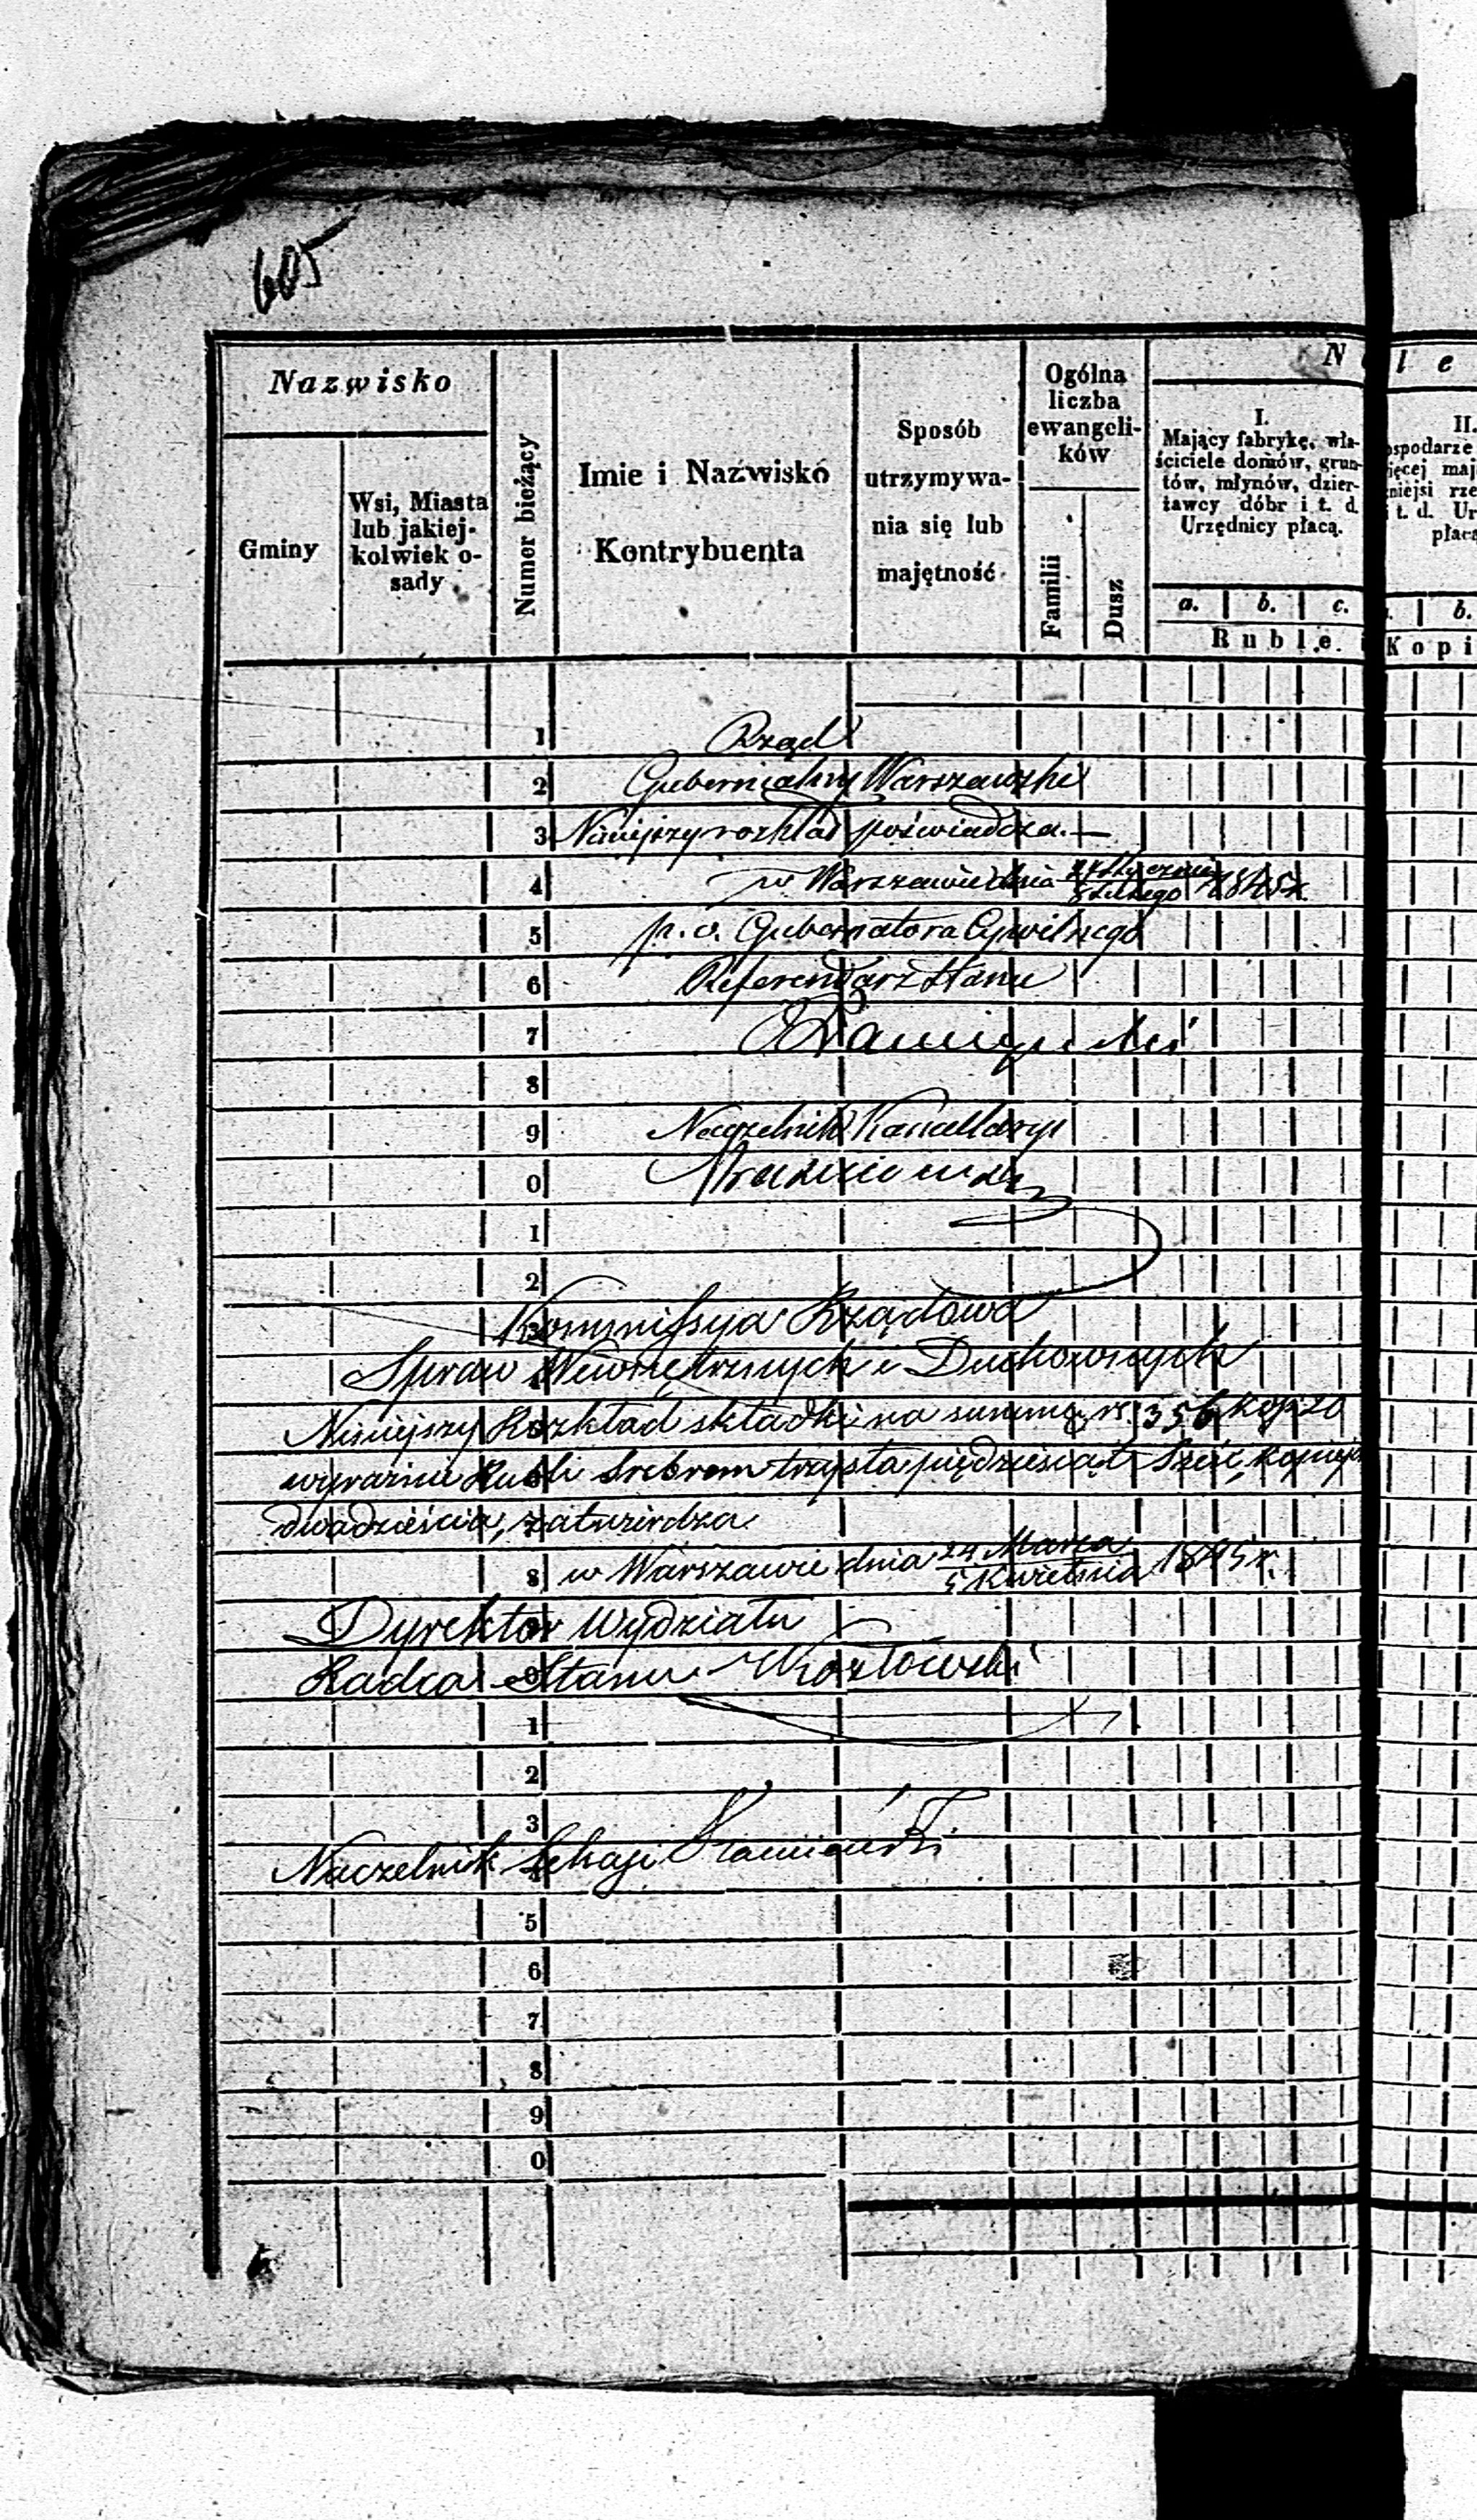 605
Nazwisko
Gminy
Wsi, Miasta
lub jakiej-
kolwiek o-
sady
Numer bieżący
Imie i Nazwisko
Kontrybuenta
Sposób
utrzymywa-
nia się lub
majętność
Ogólna
liczba
ewangeli-
ków
Familii
Dusz
N l e
I.
Mający fabrykę, wła-
ściciele domów, grun-
tów, młynów, dzier-
żawcy dóbr i t. d.
Urzędnicy płacą.
a. b. c.
Ruble
II.
ospodarze
ięcej maj
niejsi rze
i t. d. Ur
płacą
b.
Kopi
1 Rząd
2 Gubernialny Warszawski
3 Niniejszy rozkład poświadcza.—
4 w Warszawie dnia 27 Stycznia / 8 Lutego 1845 r.
5 p. o. Gubernatora Cywilnego
6 Referendarz Stanu
7
8
9 Naczelnik Kancellaryi
0
1
2
3 Kommissya Rządowa
Spraw Wewnętrznych i Duchownych
Niniejszy Rozkład składki na summę rs. 356 kop. 20
wyraźnie Rubli Srebrem trzysta piędziesiąt sześć, kopiejek
dwadzieścia, zatwierdza
8 w Warszawie dnia 24 Marca / 5 Kwietnia 1845 r.
Dyrektor Wydziału
Radca Stanu Kozłowski
1
2
3
Naczelnik Sekcyi Kamieński
5
6
7
8
9
0